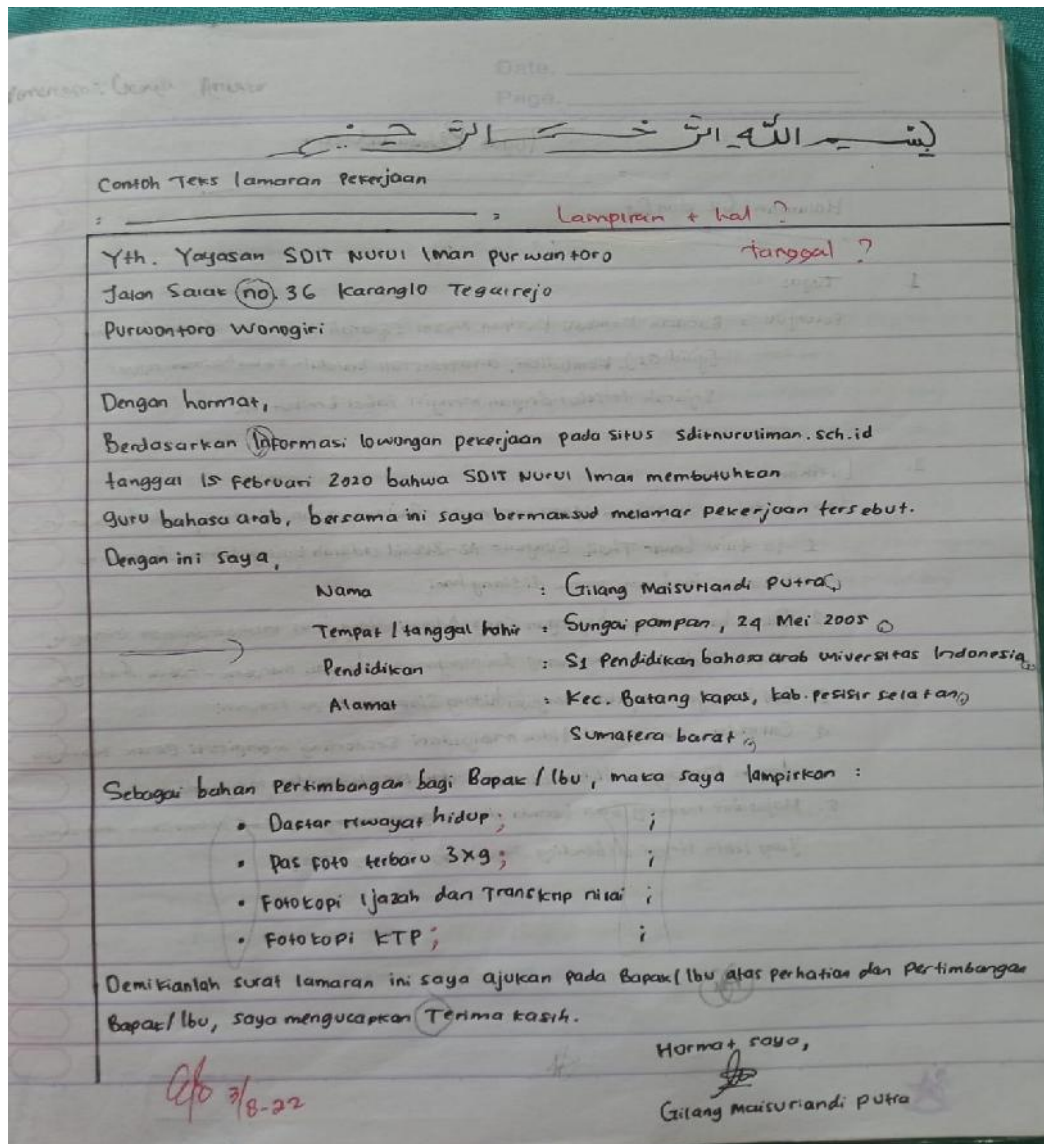 Date.
Page.
بسم الله الرحمن الرحيم
Contoh Teks lamaran Pekerjaan
Lampiran + hal ?
Yth. Yayasan SDIT Nurul Iman purwantoro
tanggal ?
Jalan Salak no. 36 Karanglo Tegalrejo
Purwontoro Wonogiri
Dengan hormat,
Berdasarkan Informasi lowongan pekerjaan pada situs sditnuruliman.sch.id
tanggal 15 Februari 2020 bahwa SDIT Nurul Iman membutuhkan
guru bahasa arab, bersama ini saya bermaksud melamar pekerjaan tersebut.
Dengan ini saya,
Nama : Gilang Maisuriandi Putra
Tempat / tanggal lahir : Sungai pampan, 24 Mei 2005
Pendidikan : S1 Pendidikan bahasa arab universitas Indonesia
Alamat : Kec. Batang kapas, kab. pesisir selatan
Sumatera barat
Sebagai bahan Pertimbangan bagi Bapak / Ibu, maka saya lampirkan :
• Daftar riwayat hidup; ;
• Pas foto terbaru 3x9; ;
• Fotokopi Ijazah dan Transkrip nilai ;
• Fotokopi KTP; ;
Demikianlah surat lamaran ini saya ajukan pada Bapak/Ibu atas perhatian dan Pertimbangan
Bapak/Ibu, saya mengucapkan Terima kasih.
Hormat saya,
3/8-22
Gilang maisuriandi putra